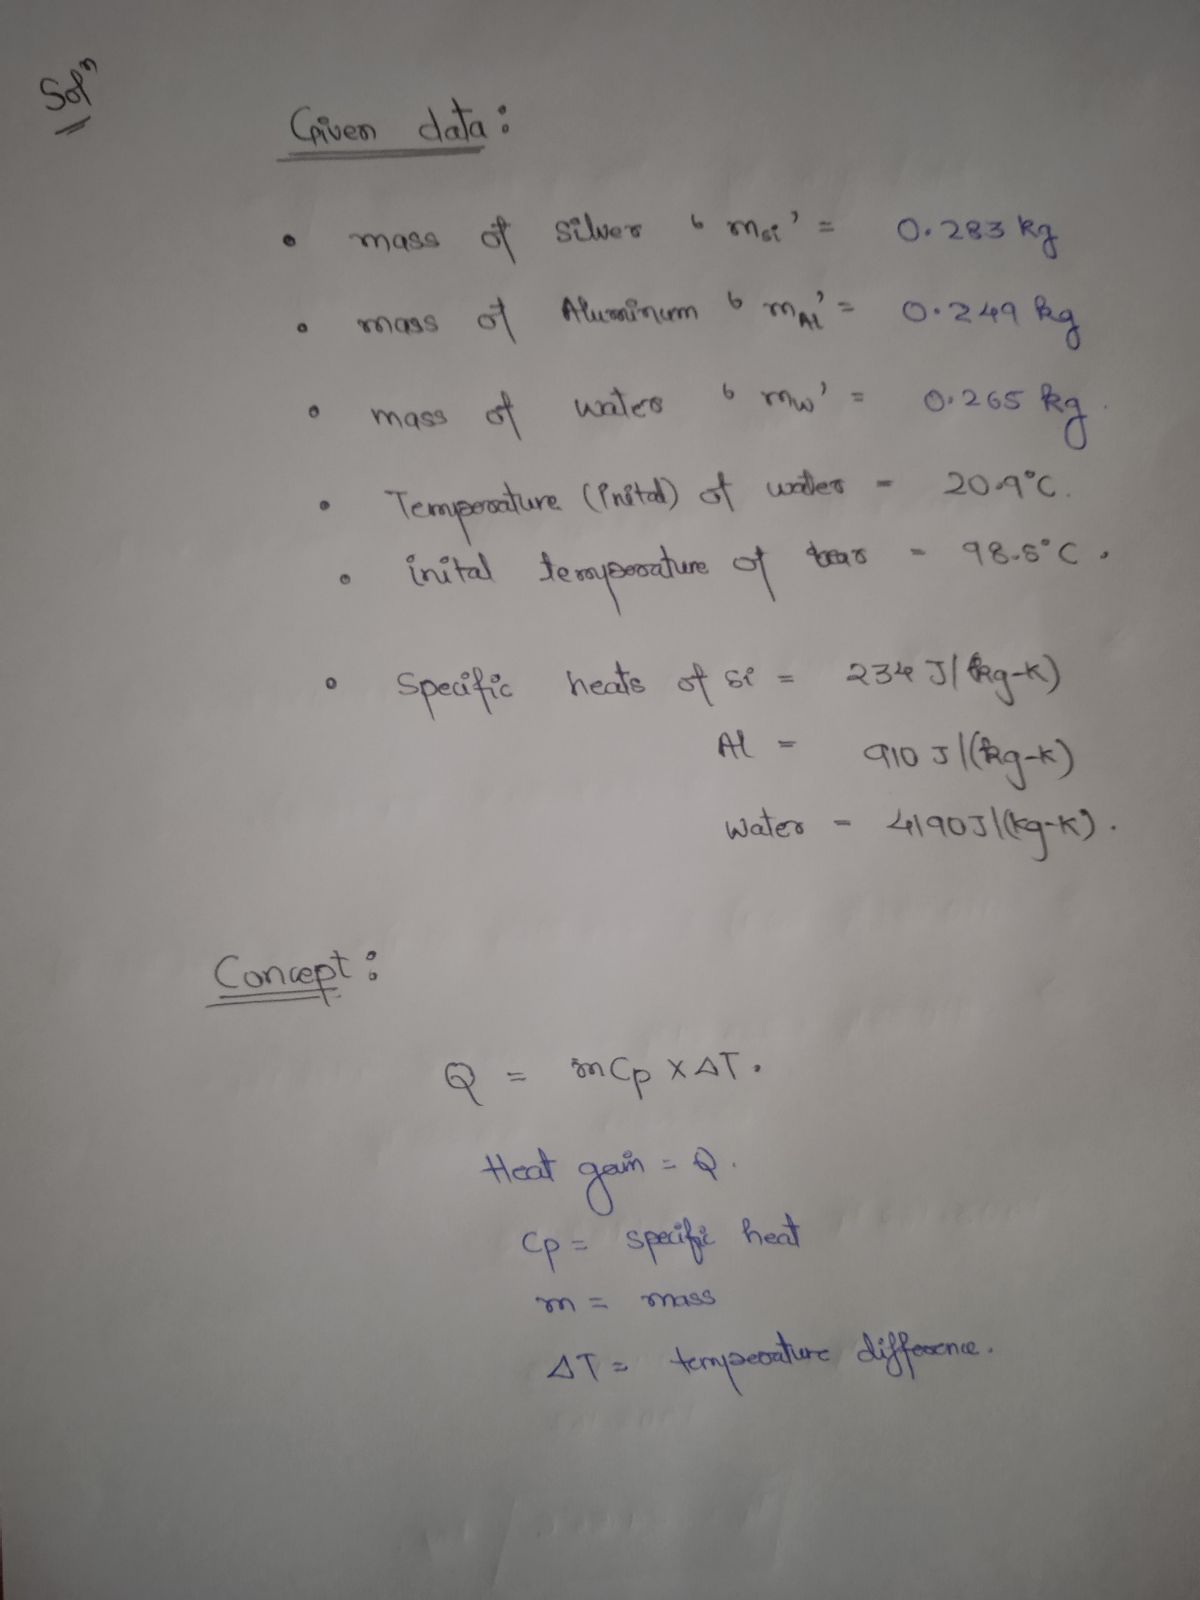 Solⁿ
Given data:
• mass of silver 'msi' = 0.283 kg
• mass of Aluminum 'mAl' = 0.249 kg
• mass of water 'mw' = 0.265 kg.
• Temperature (inital) of water = 20.9°C.
• inital temperature of bar = 98.5°C.
• Specific heats of si = 234 J/(kg-K)
Al = 910 J/(kg-K)
water = 4190J/(kg-K).
Concept:
Q = mCp x ΔT.
Heat gain = Q.
Cp = specific heat
m = mass
ΔT = temperature difference.